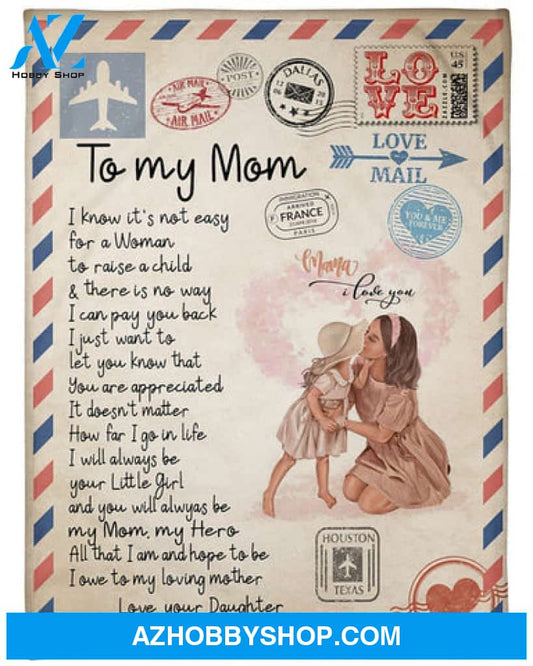 AZ
HOBBY SHOP
AIR MAIL
AIR MAIL
POST
DALLAS
LOVE
US
45
ZAZZLE.COM
To my Mom
LOVE
MAIL
IMMIGRATION
ARRIVED
FRANCE
PARIS
YOU & ME
FOREVER
Mama
i love you
I know it's not easy
for a Woman
to raise a child
& there is no way
I can pay you back
I just want to
let you know that
You are appreciated
It doesn't matter
How far I go in life
I will always be
your Little Girl
and you will alwyas be
my Mom, my Hero
All that I am and hope to be
I owe to my loving mother
Love, your Daughter
HOUSTON
TEXAS
AZHOBBYSHOP.COM